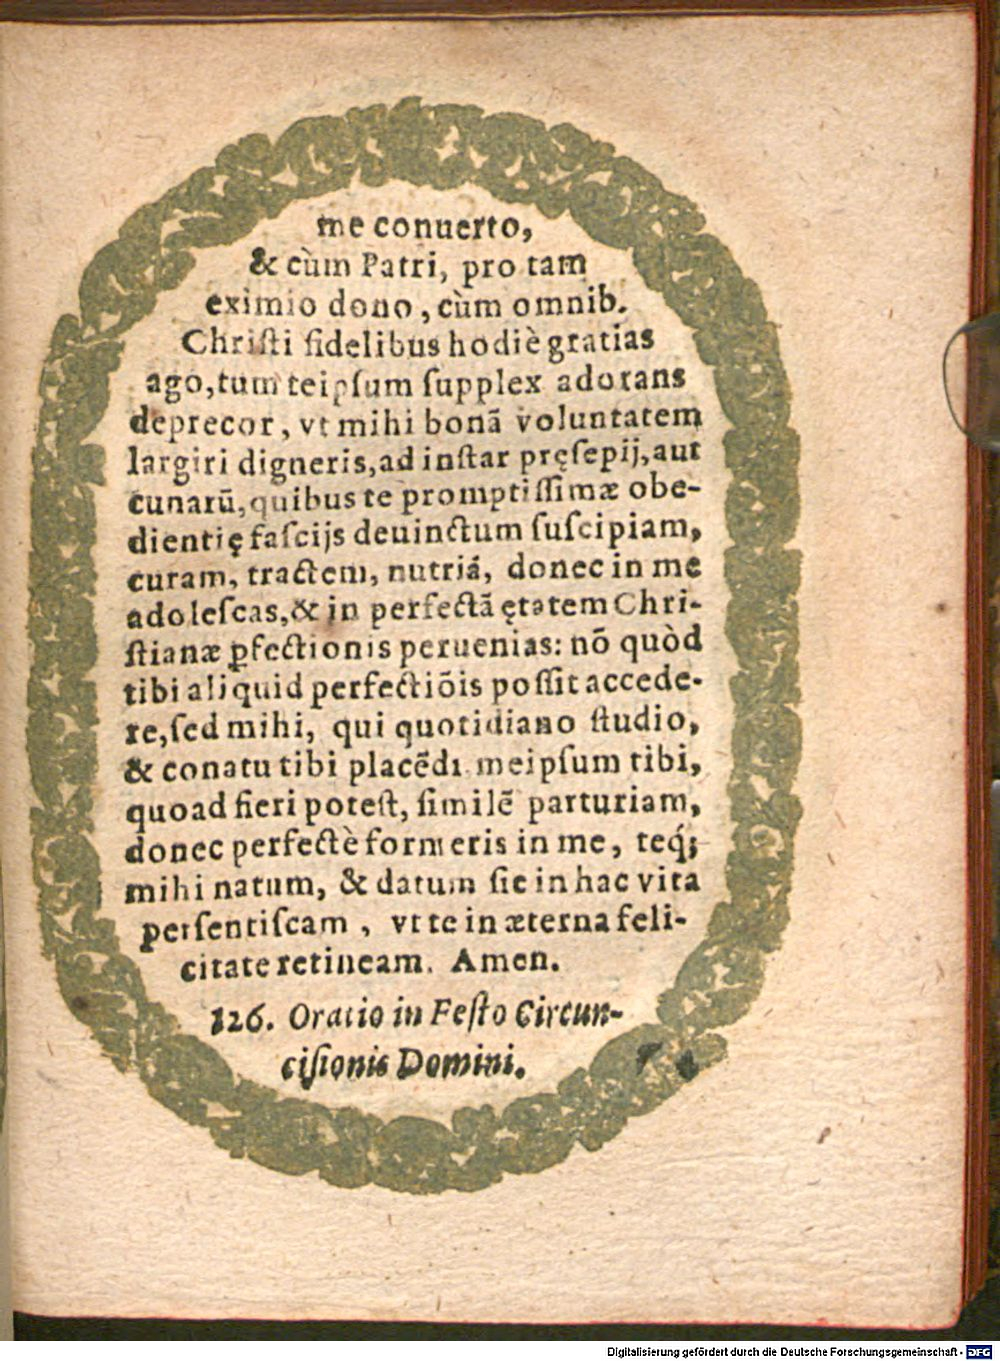 me conuerto,
& cùm Patri, pro tam
eximio dono, cùm omnib.
Christi fidelibus hodiè gratias
ago, tum teipsum supplex adorans
deprecor, vt mihi bonā voluntatem
largiri digneris, ad instar pręsepij, aut
cunarū, quibus te promptissimæ obe-
dientię fascijs deuinctum suscipiam,
curam, tractem, nutriā, donec in me
adolescas, & in perfectā ętatem Chri-
stianæ ꝑfectionis peruenias: nō quòd
tibi aliquid perfectiōis possit accede-
re, sed mihi, qui quotidiano studio,
& conatu tibi placēdi meipsum tibi,
quoad fieri potest, similē parturiam,
donec perfectè formeris in me, teq́;
mihi natum, & datum sic in hac vita
persentiscam, vt te in æterna feli-
citate retineam. Amen.
126. Oratio in Festo Circun-
cisionis Domini.
Digitalisierung gefördert durch die Deutsche Forschungsgemeinschaft - DFG